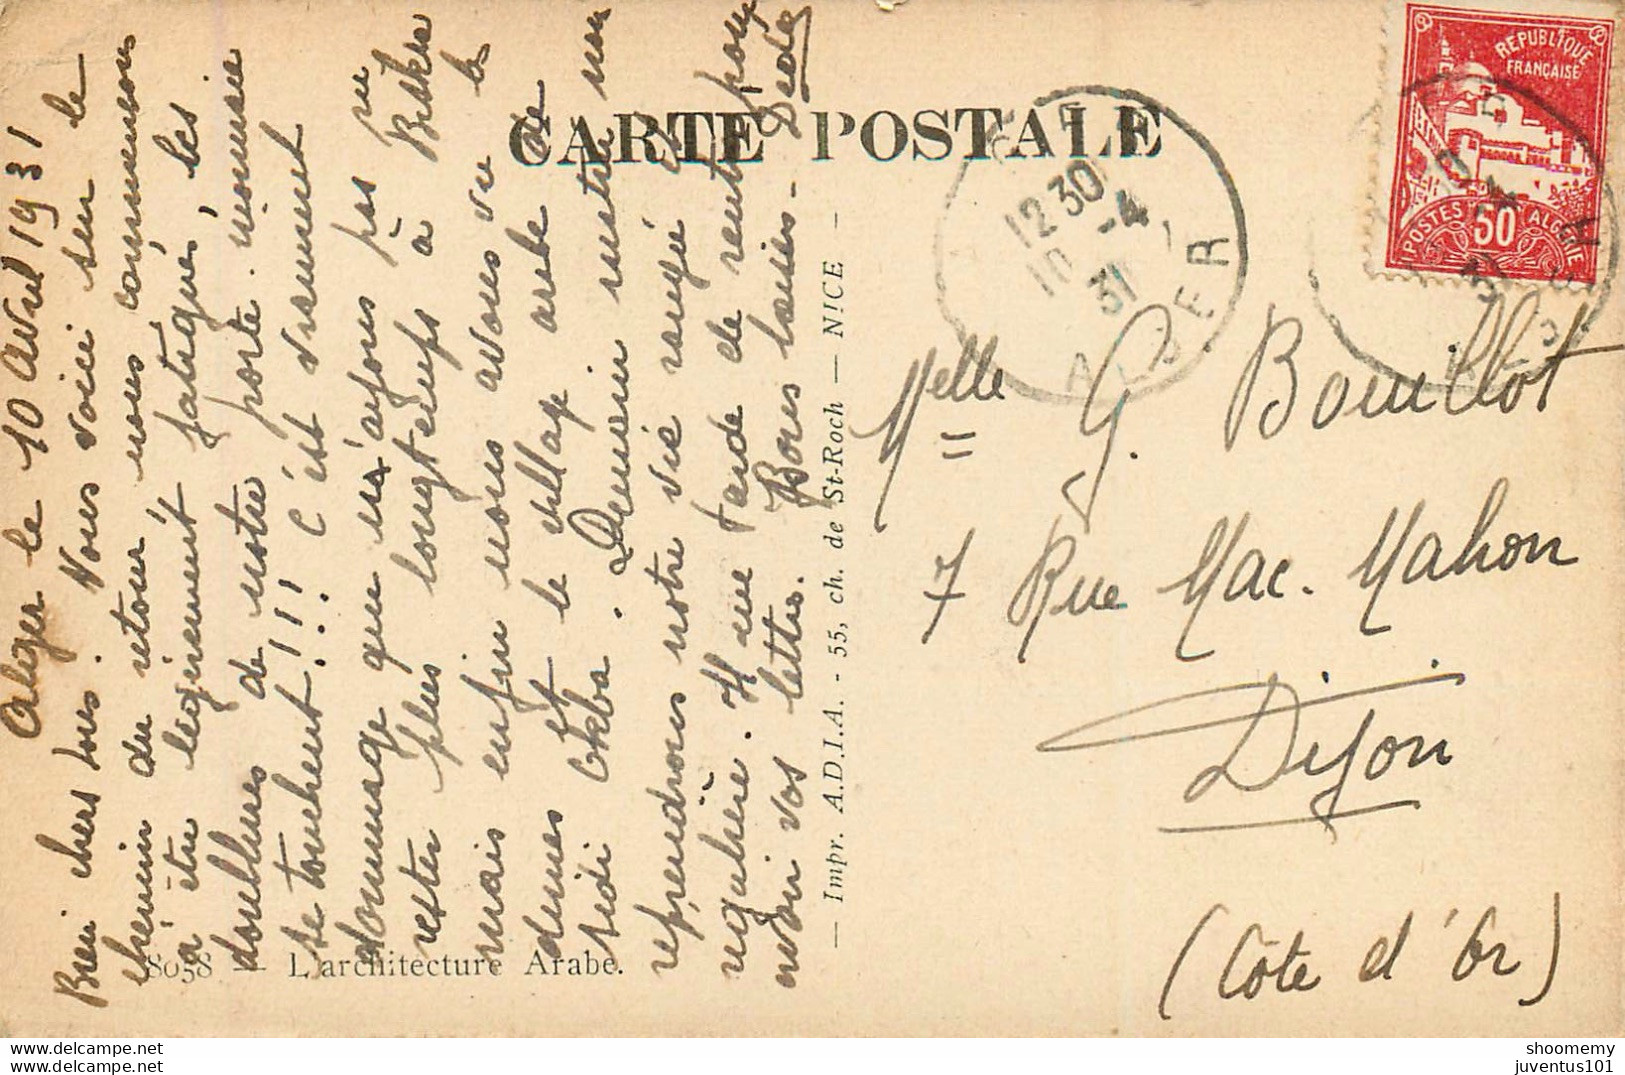 CARTE POSTALE
Alger le 10 Avril 1931
Bien chers tous. Nous voici sur le
chemin du retour nous commençons
à être légèrement fatigués, les
doublures de notre porte-monnaie
se touchent!!! C'est vraiment
dommage que n'ayons pas pu
rester plus longtemps à Biskra
mais enfin nous avons vu les
dunes et le village arabe de
Sidi Okba. Demain matin nous
reprendrons notre vie rangée et
régulière. Il me tarde de rentrer pour
avoir vos lettres. Bons baisers - Dédé
8058 — L'architecture Arabe.
— Impr. A.D.I.A. - 55, ch. de St-Roch — NICE —
ALGER
12 30
10 -4
31
REPUBLIQUE
FRANÇAISE
POSTES 50 ALGERIE
Melle G. Bouillot
7 Rue Mac-Mahon
Dijon
(Côte d'Or)
shoomemy
juventus101